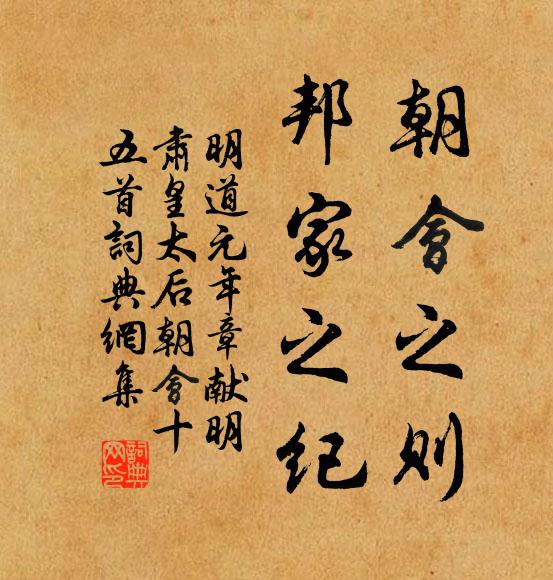 朝會之則
邦家之紀
明道元年章献明
肅皇太后朝會十
五首詞典網集
詞典
网印